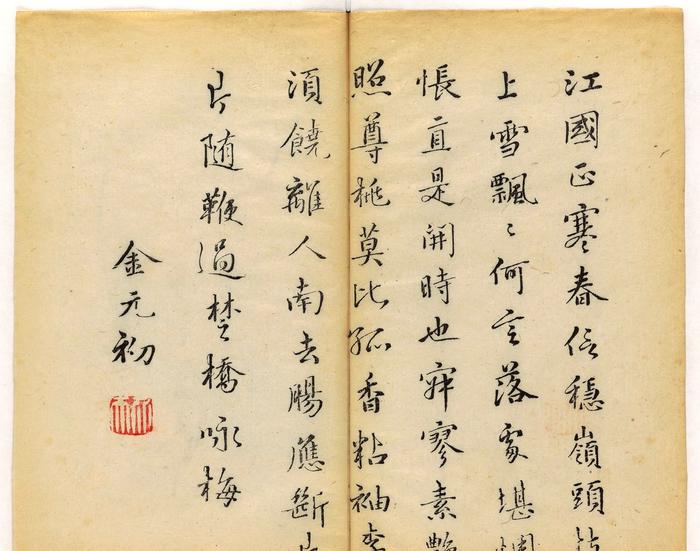 江國正寒春信穩嶺頭
上雪飄〻何言落處堪
悵直是開時也寂寥素艷
照尊桃莫比孤香粘袖李
須饒離人南去腸應斷片
片随鞭過楚橋咏梅
金元初